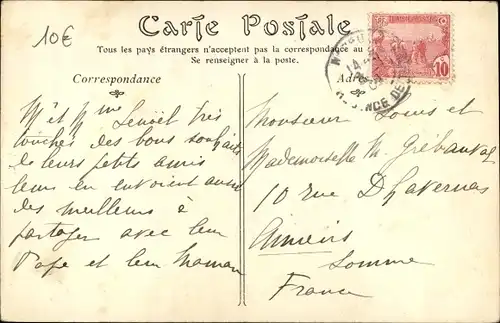 10€
Carte Postale
Tous les pays étrangers n'acceptent pas la correspondance au
Se renseigner à la poste.
Correspondance
Adre
10
Mr et Mme Lenoël très
touchés des bons souhaits
de leurs petits amis
leur en envoient aussi
des meilleurs à
partager avec leur
Papa et leur Maman
Monsieur Louis et
Mademoiselle M. Grébauval
10 rue Dhavernas
Amiens
Somme
France